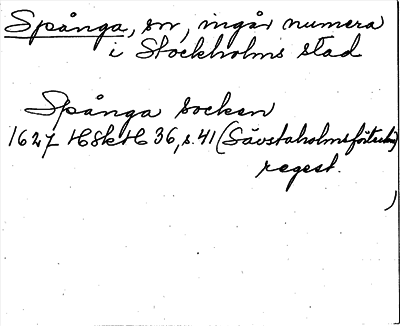 Spånga, sn, ingår numera
i Stockholms stad
Spånga socken
1627 HSkH 36, s. 41 (Sävstaholmsförteckn
regest.
)